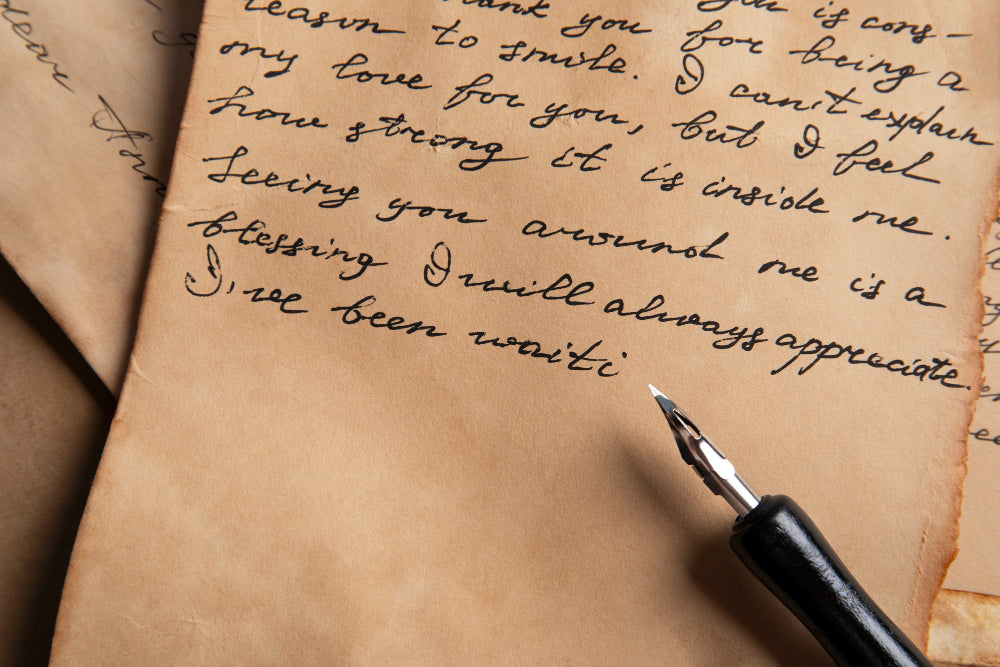 you is cons-
Thank you for being a
reason to smile. I can't explain
my love for you, but I feel
how strong it is inside me.
Seeing you around me is a
blessing I will always appreciate.
I've been waiti